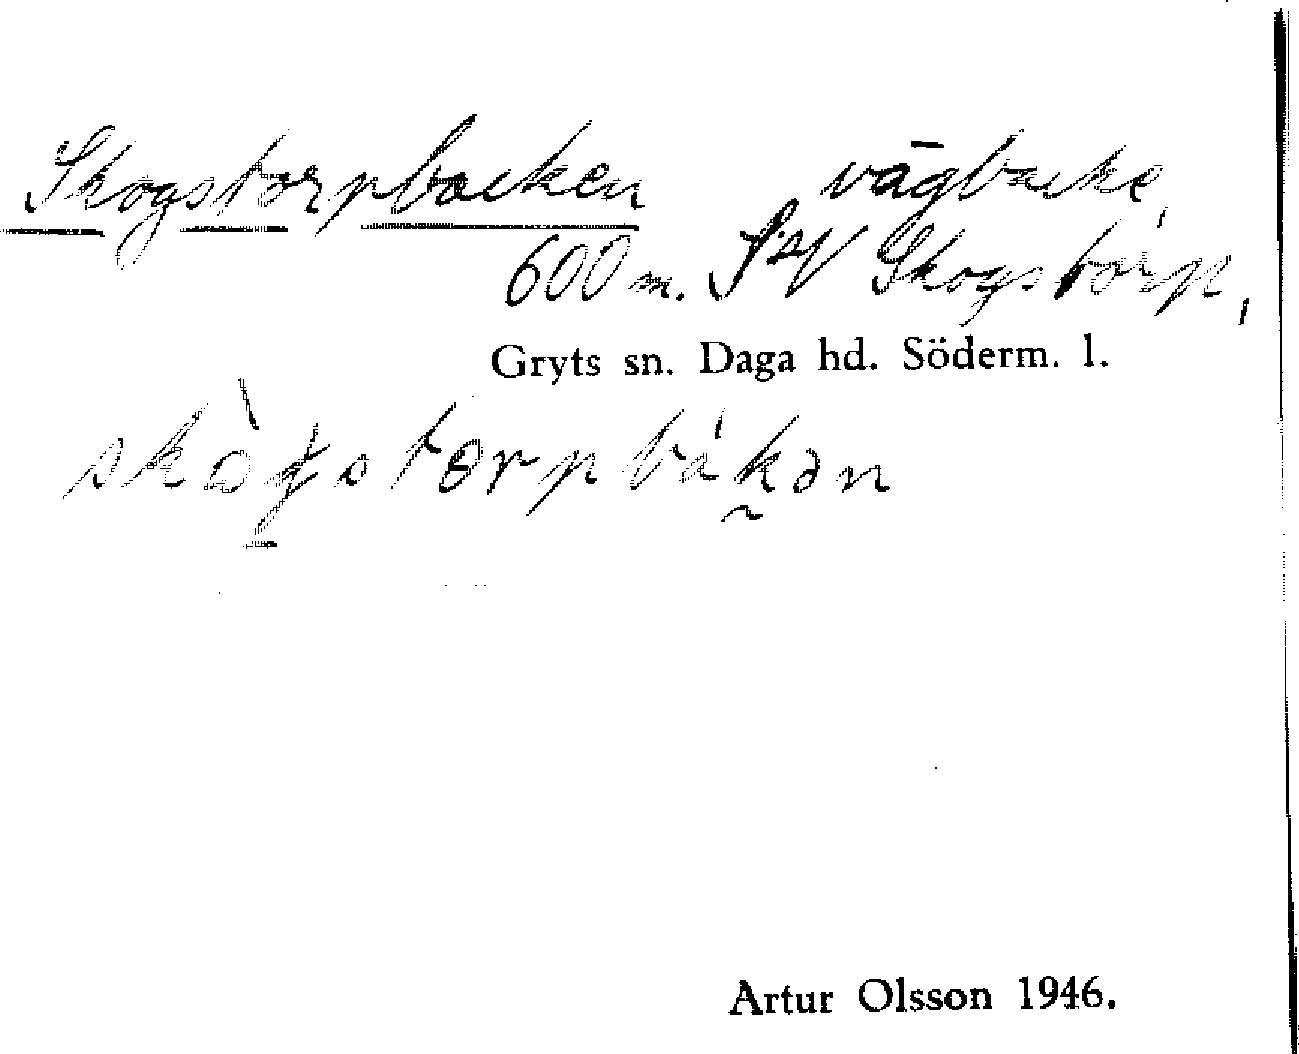 Skogstorpbacken vägbacke,
600 m. SV Skogstorp,
Gryts sn. Daga hd. Söderm. l.
skògstorpbákən
Artur Olsson 1946.